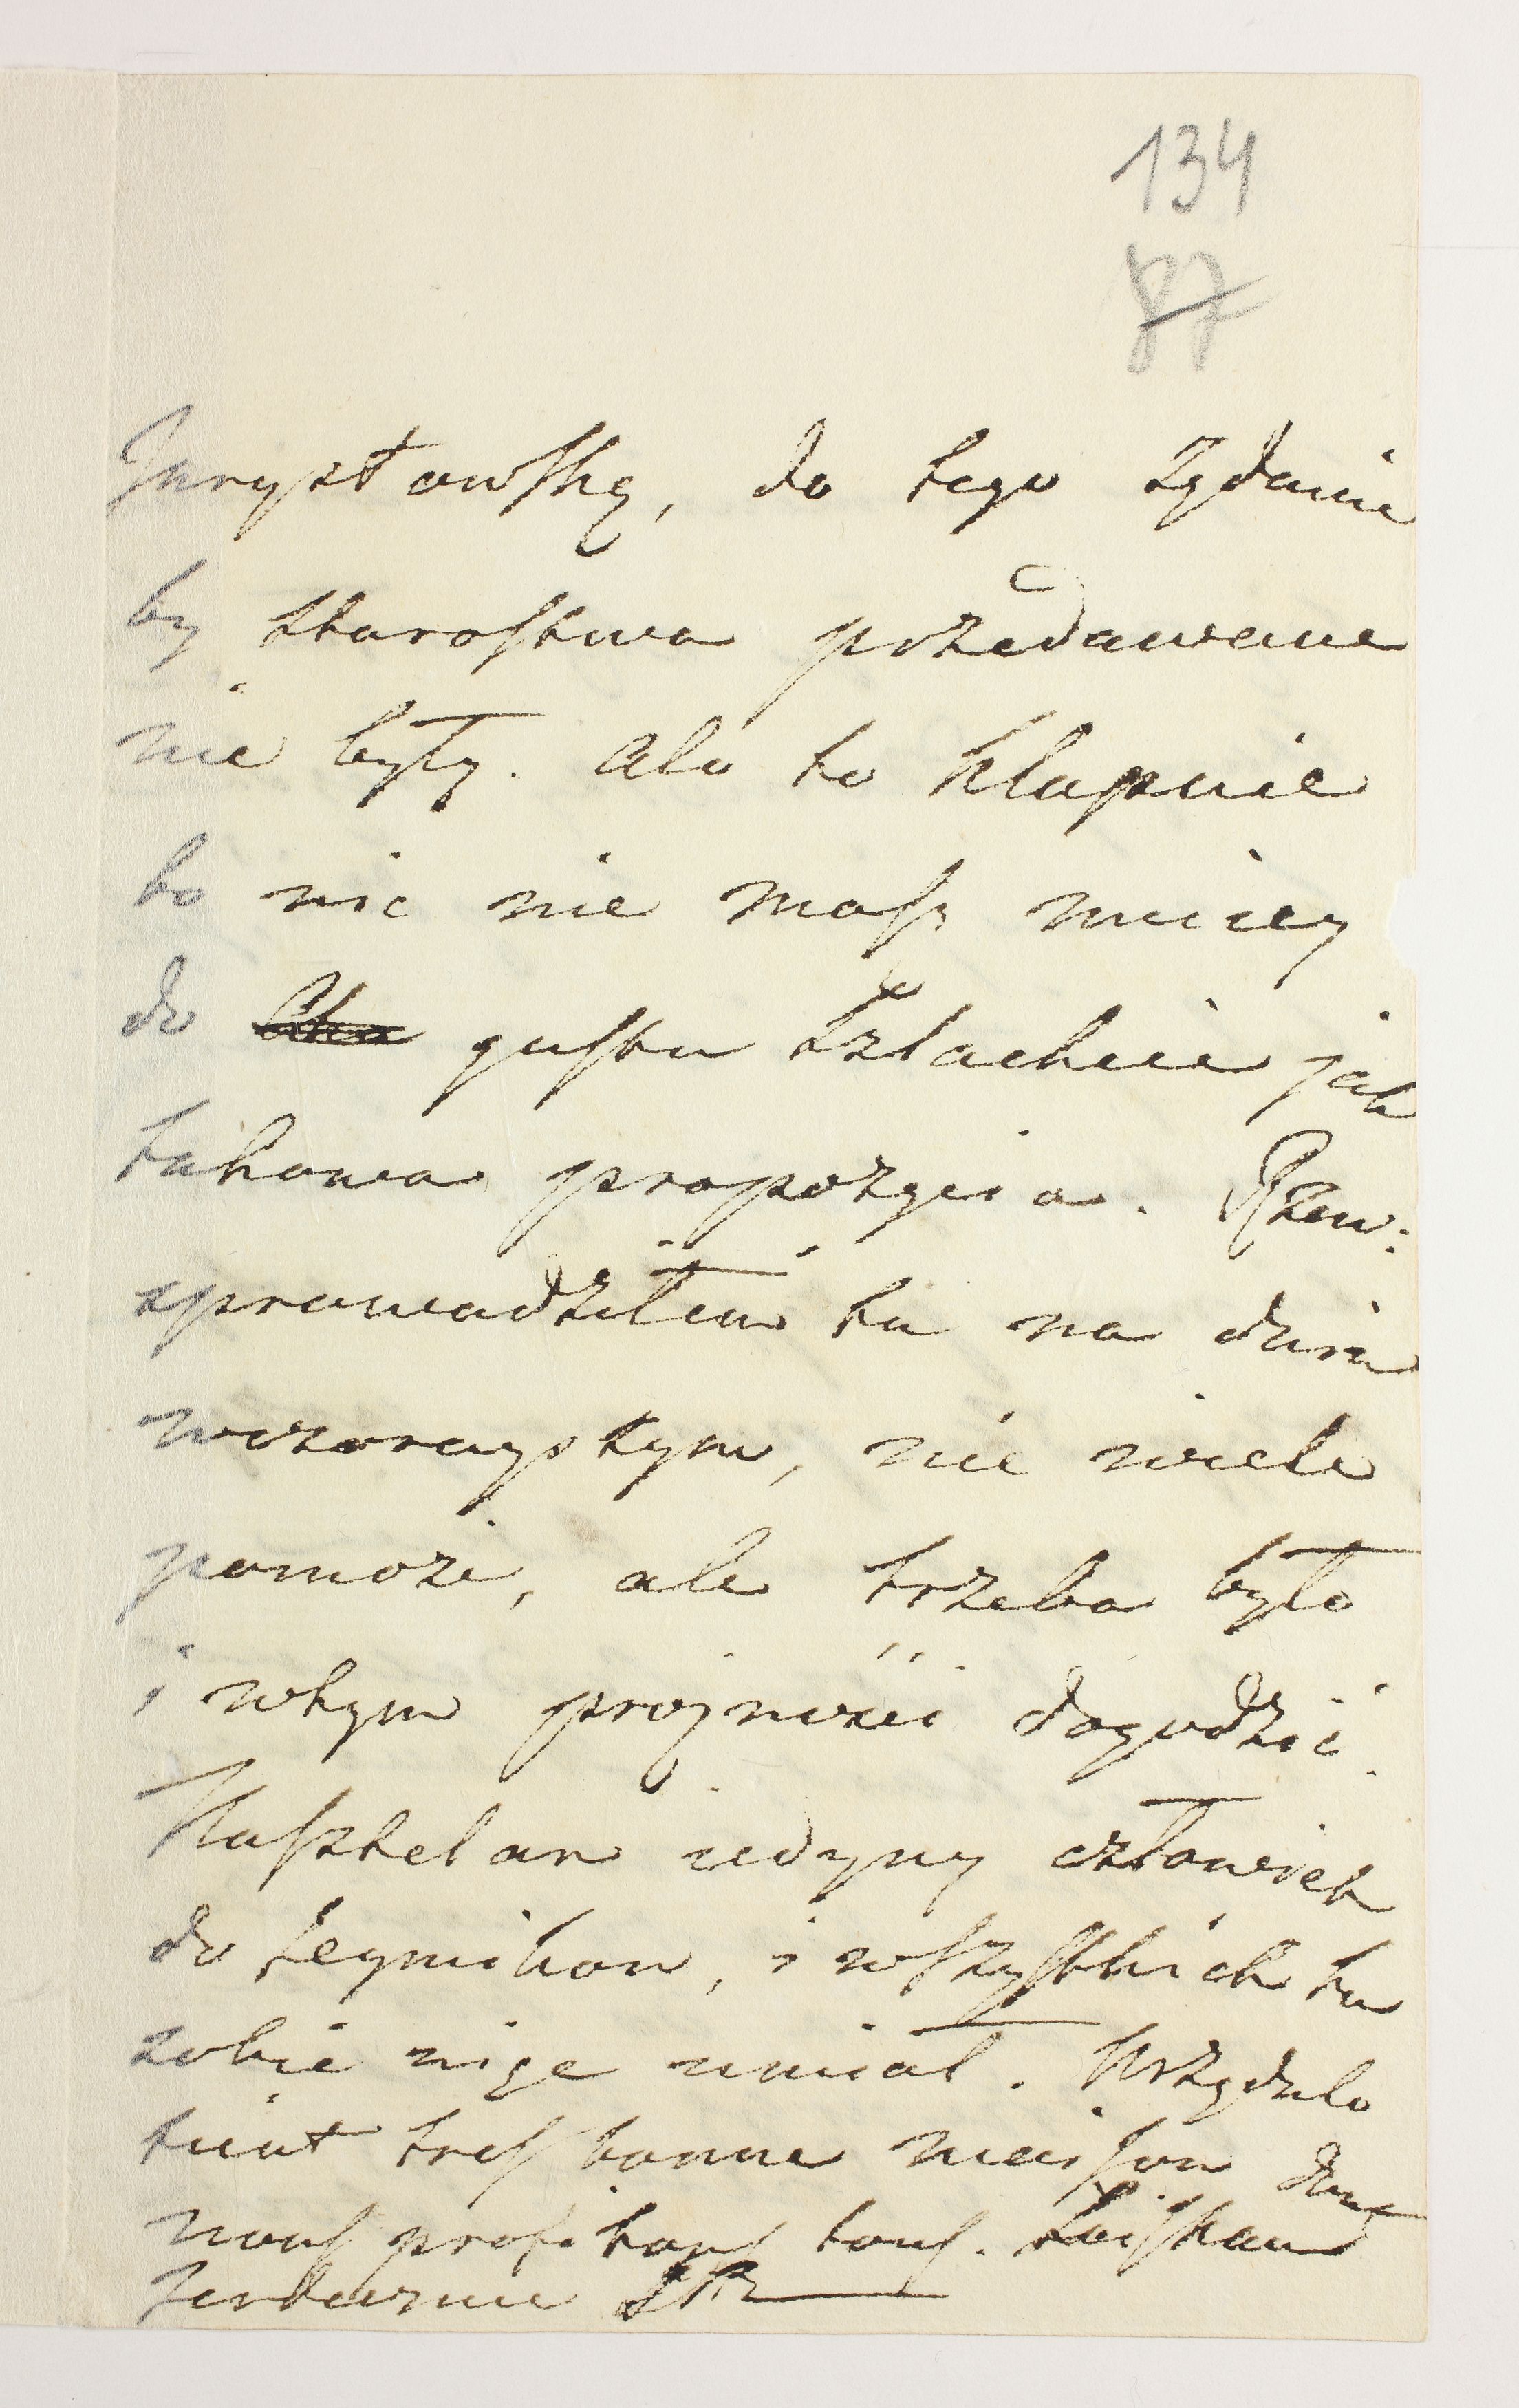 134
87
Jurystowską, do tego żądanie
by Starostwa przedawane
nie były. Ale to klapnie
bo nic nie masz mniey
do gustu Szlachcie jak
takowa propozycia. Rzew:
sprowadziłem tu na dniu
wczorayszym, nie wiele
pomoże, ale trzeba było
i wtym projności dogodzić.
Kasztelan iedyny człowiek
do Seymikow, i wszystkich tu
sobie uiąć umiał. Urzędulo
tient tres bonne maison dont
nous profitons tous. Sciskam
serdecznie SP